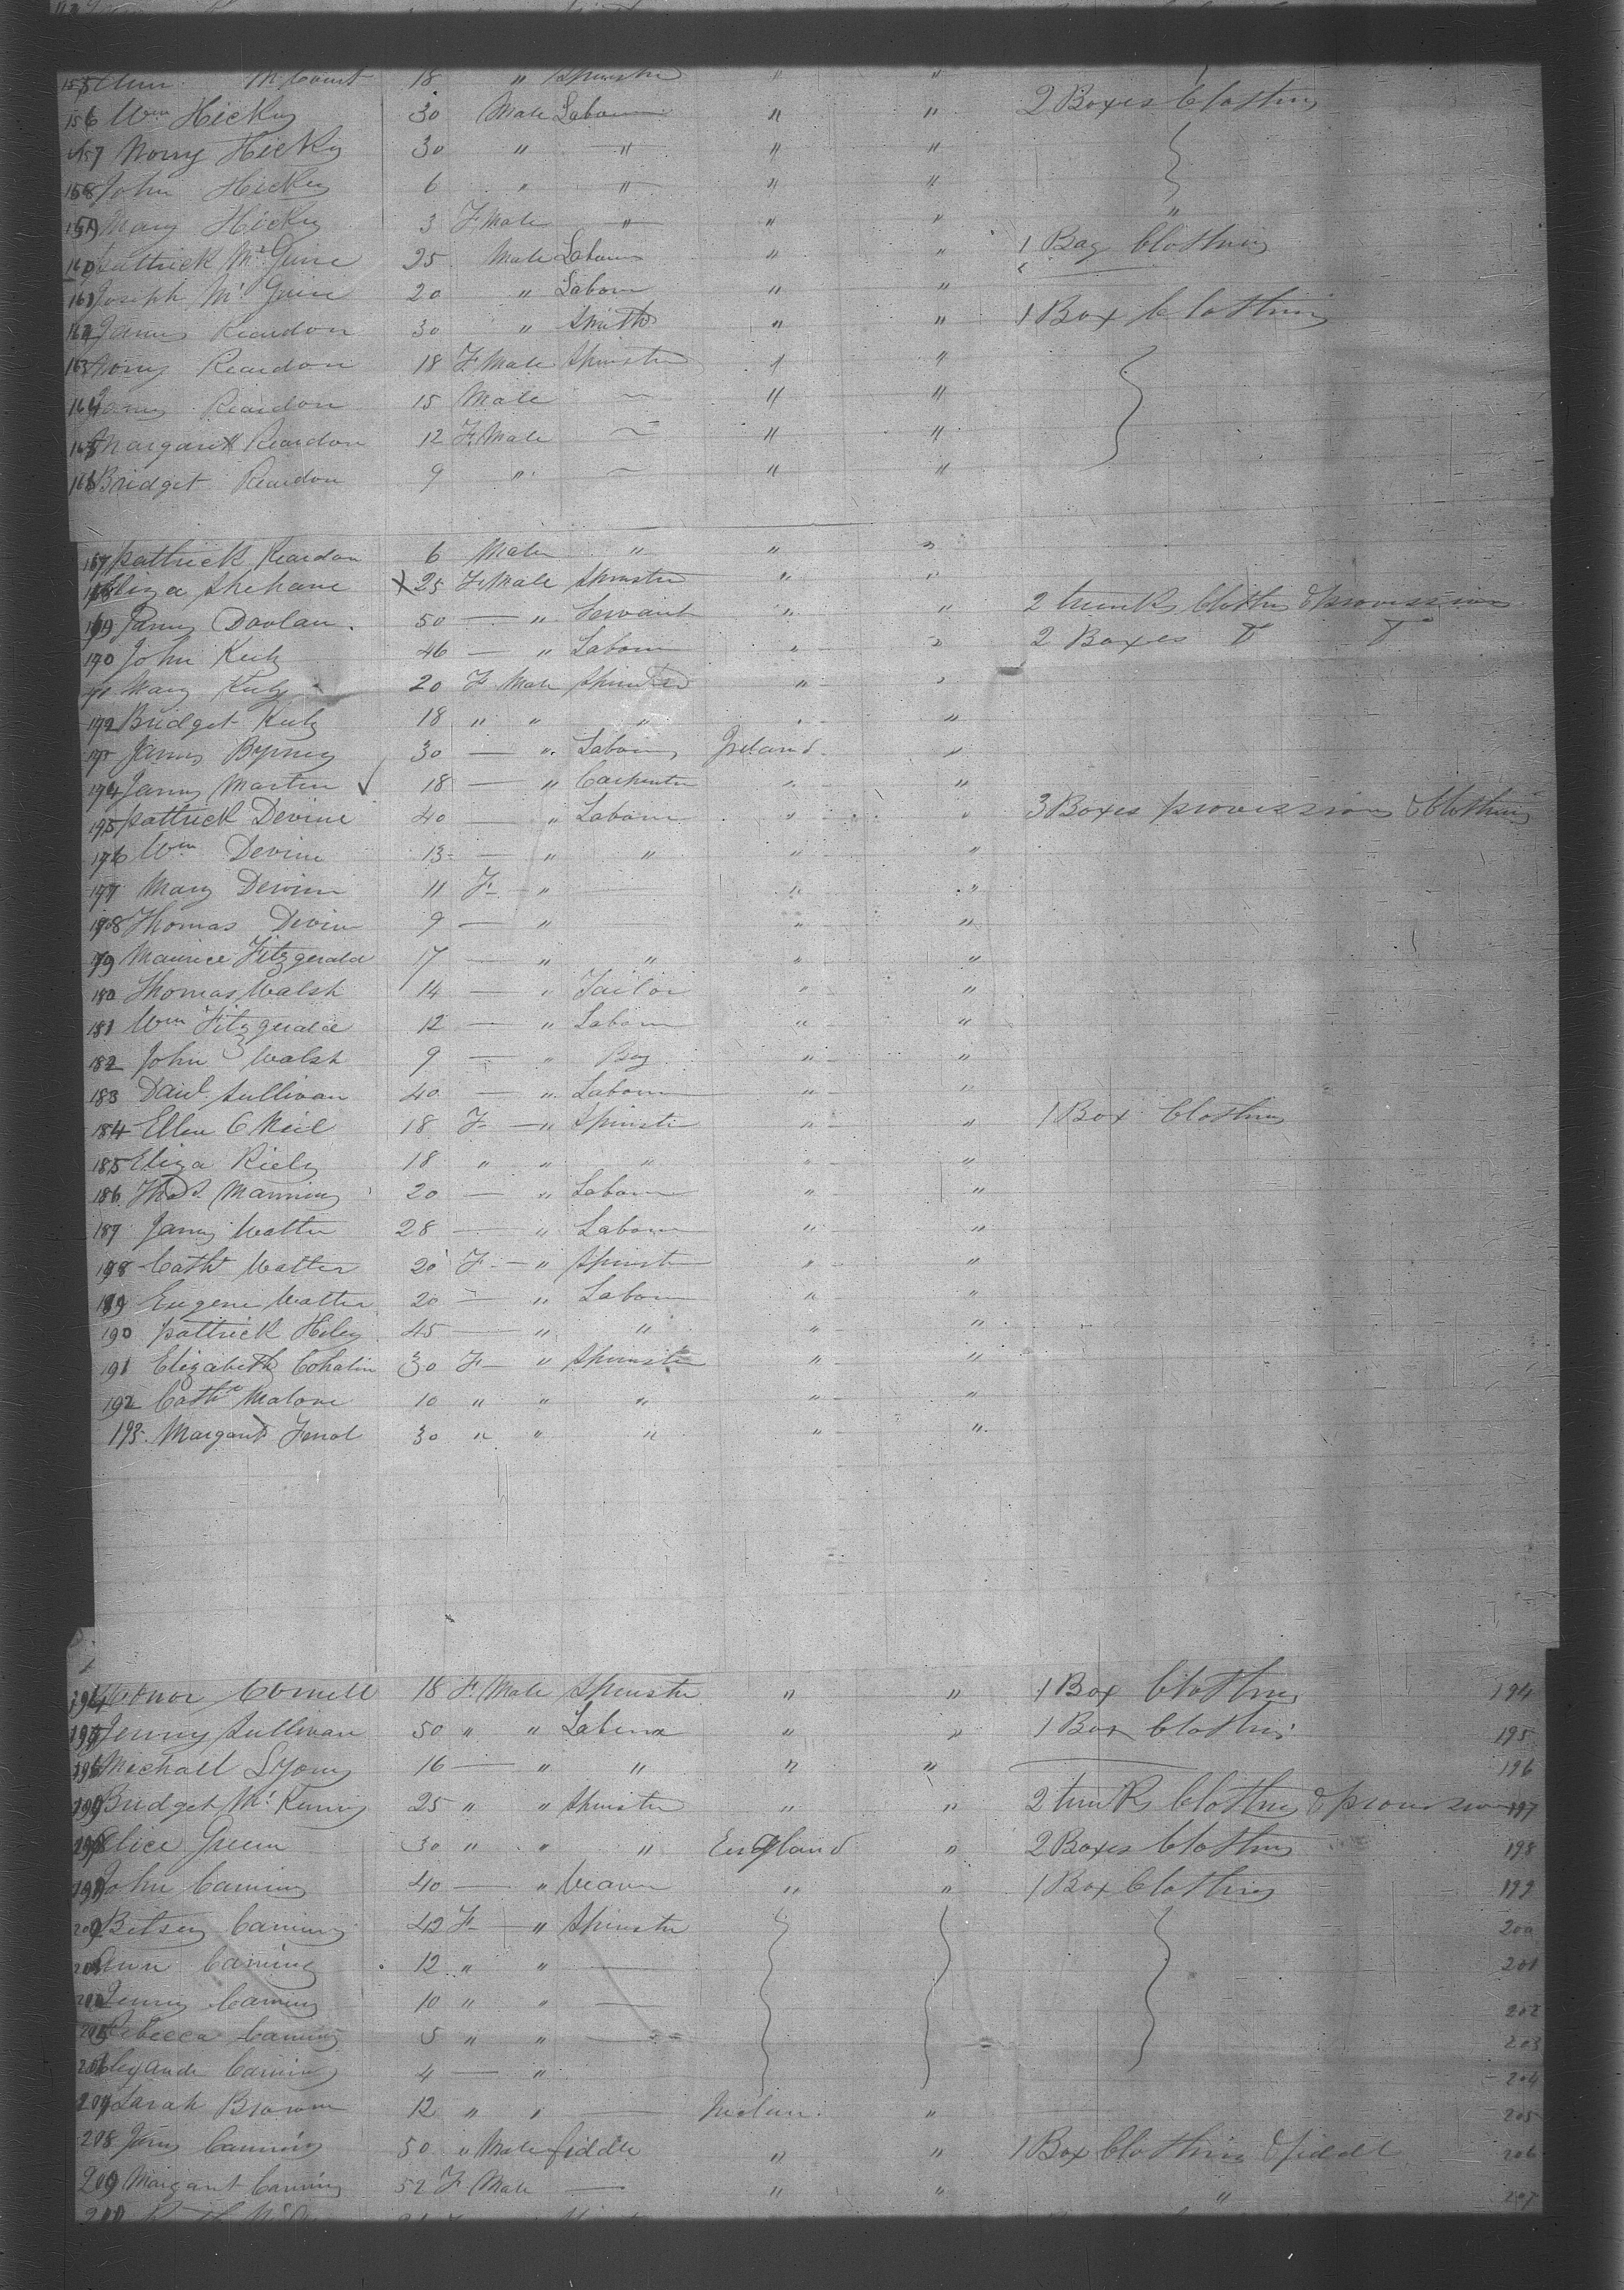 155 Ann McCourt 18 " Spinster " "
156 Wm Hicky 30 Male Labour " " 2 Boxes Clothing
157 Norry Hicky 30 " " " "
158 John Hicky 6 " " " "
159 Mary Hicky 3 F Male " " " "
160 Pattrick Mc Guire 25 Male Labour " " 1 Bag Clothing
161 Joseph Mc Guire 20 " Labour " "
162 James Reardon 30 " Smith " " 1 Box Clothing
163 Norry Reardon 18 F Male Spinster " "
164 Reardon 15 Male " "
165 Margarett Reardon 12 F. Male " "
166 Bridget Reardon 9 " " "
167 Pattrick Reardon 6 Male " " "
168 Eliza Shehane X 25 F Male Spinster " "
169 James Doolan. 50 — " Servant " " 2 trunks Clothing & provission
170 John Kiely 46 — " Labour " " 2 Boxes
171 Mary Kiely 20 F Male Spinster " "
172 Bridget Kiely 18 " " " " "
173 James Byrney 30 — " Labour Ireland "
174 James Martin ✓ 18 — " Carpenter " "
175 Pattrick Devine 40 — " Labour " " 3 Boxes provissions & Clothing
176 Wm Devine 13 — " " " "
177 Mary Devine 11 F — " — " "
178 Thomas Devine 9 — " " "
179 Maurice Fitzgerald 17 — " " " "
180 Thomas Walsh 14 — " Tailor " "
181 Wm Fitzgerald 12 — " Labour " "
182 John Walsh 9 — " Boy " "
183 Danl Sullivan 40 — " Labour " "
184 Ellen O Neil 18 F — " Spinster " " 1 Box Clothing
185 Eliza Riely 18 " " " " "
186 Thos Manning 20 — " Labour " "
187 James Walter 28 — " Labour " "
198 Cath Walter 20 F — " Spinster " "
189 Eugene Walter 20 — " Labour " "
190 Pattrick Heley 45 — " " " "
191 Elizabeth Cohalin 30 F — " Spinster " "
192 Cathe Malone 10 " " " " "
193. Margaret Ferrol 30 " " " " "
194 Connell 18 F. Male Spinster " " 1 Box Clothing 194
195 Jenny Sullivan 50 " " Labour " " 1 Box Clothing 195
196 Michall Lyons 16 — " " " " 196
197 Bridget Mc 25 " " Spinster " " 2 trunks Clothing & provission 197
198 Alice Green 30 " " " England " 2 Boxes Clothing 198
199 John Canning 40 — " Weaver " " 1 Box Clothing 199
200 Betsey Canning 42 F — " Spinster 200
Ann Canning 12 " " — 201
Jenny Canning 10 " " — 202
Rebecca Canning 5 " " — 203
Canning 4 — " 204
207 Sarah Brown 12 " " — Irelan. " 205
208 James Canning 50 " Male fiddler " " 1 Box Clothing & fiddle 206
209 Margaret Canning 52 F Male — " " " 207